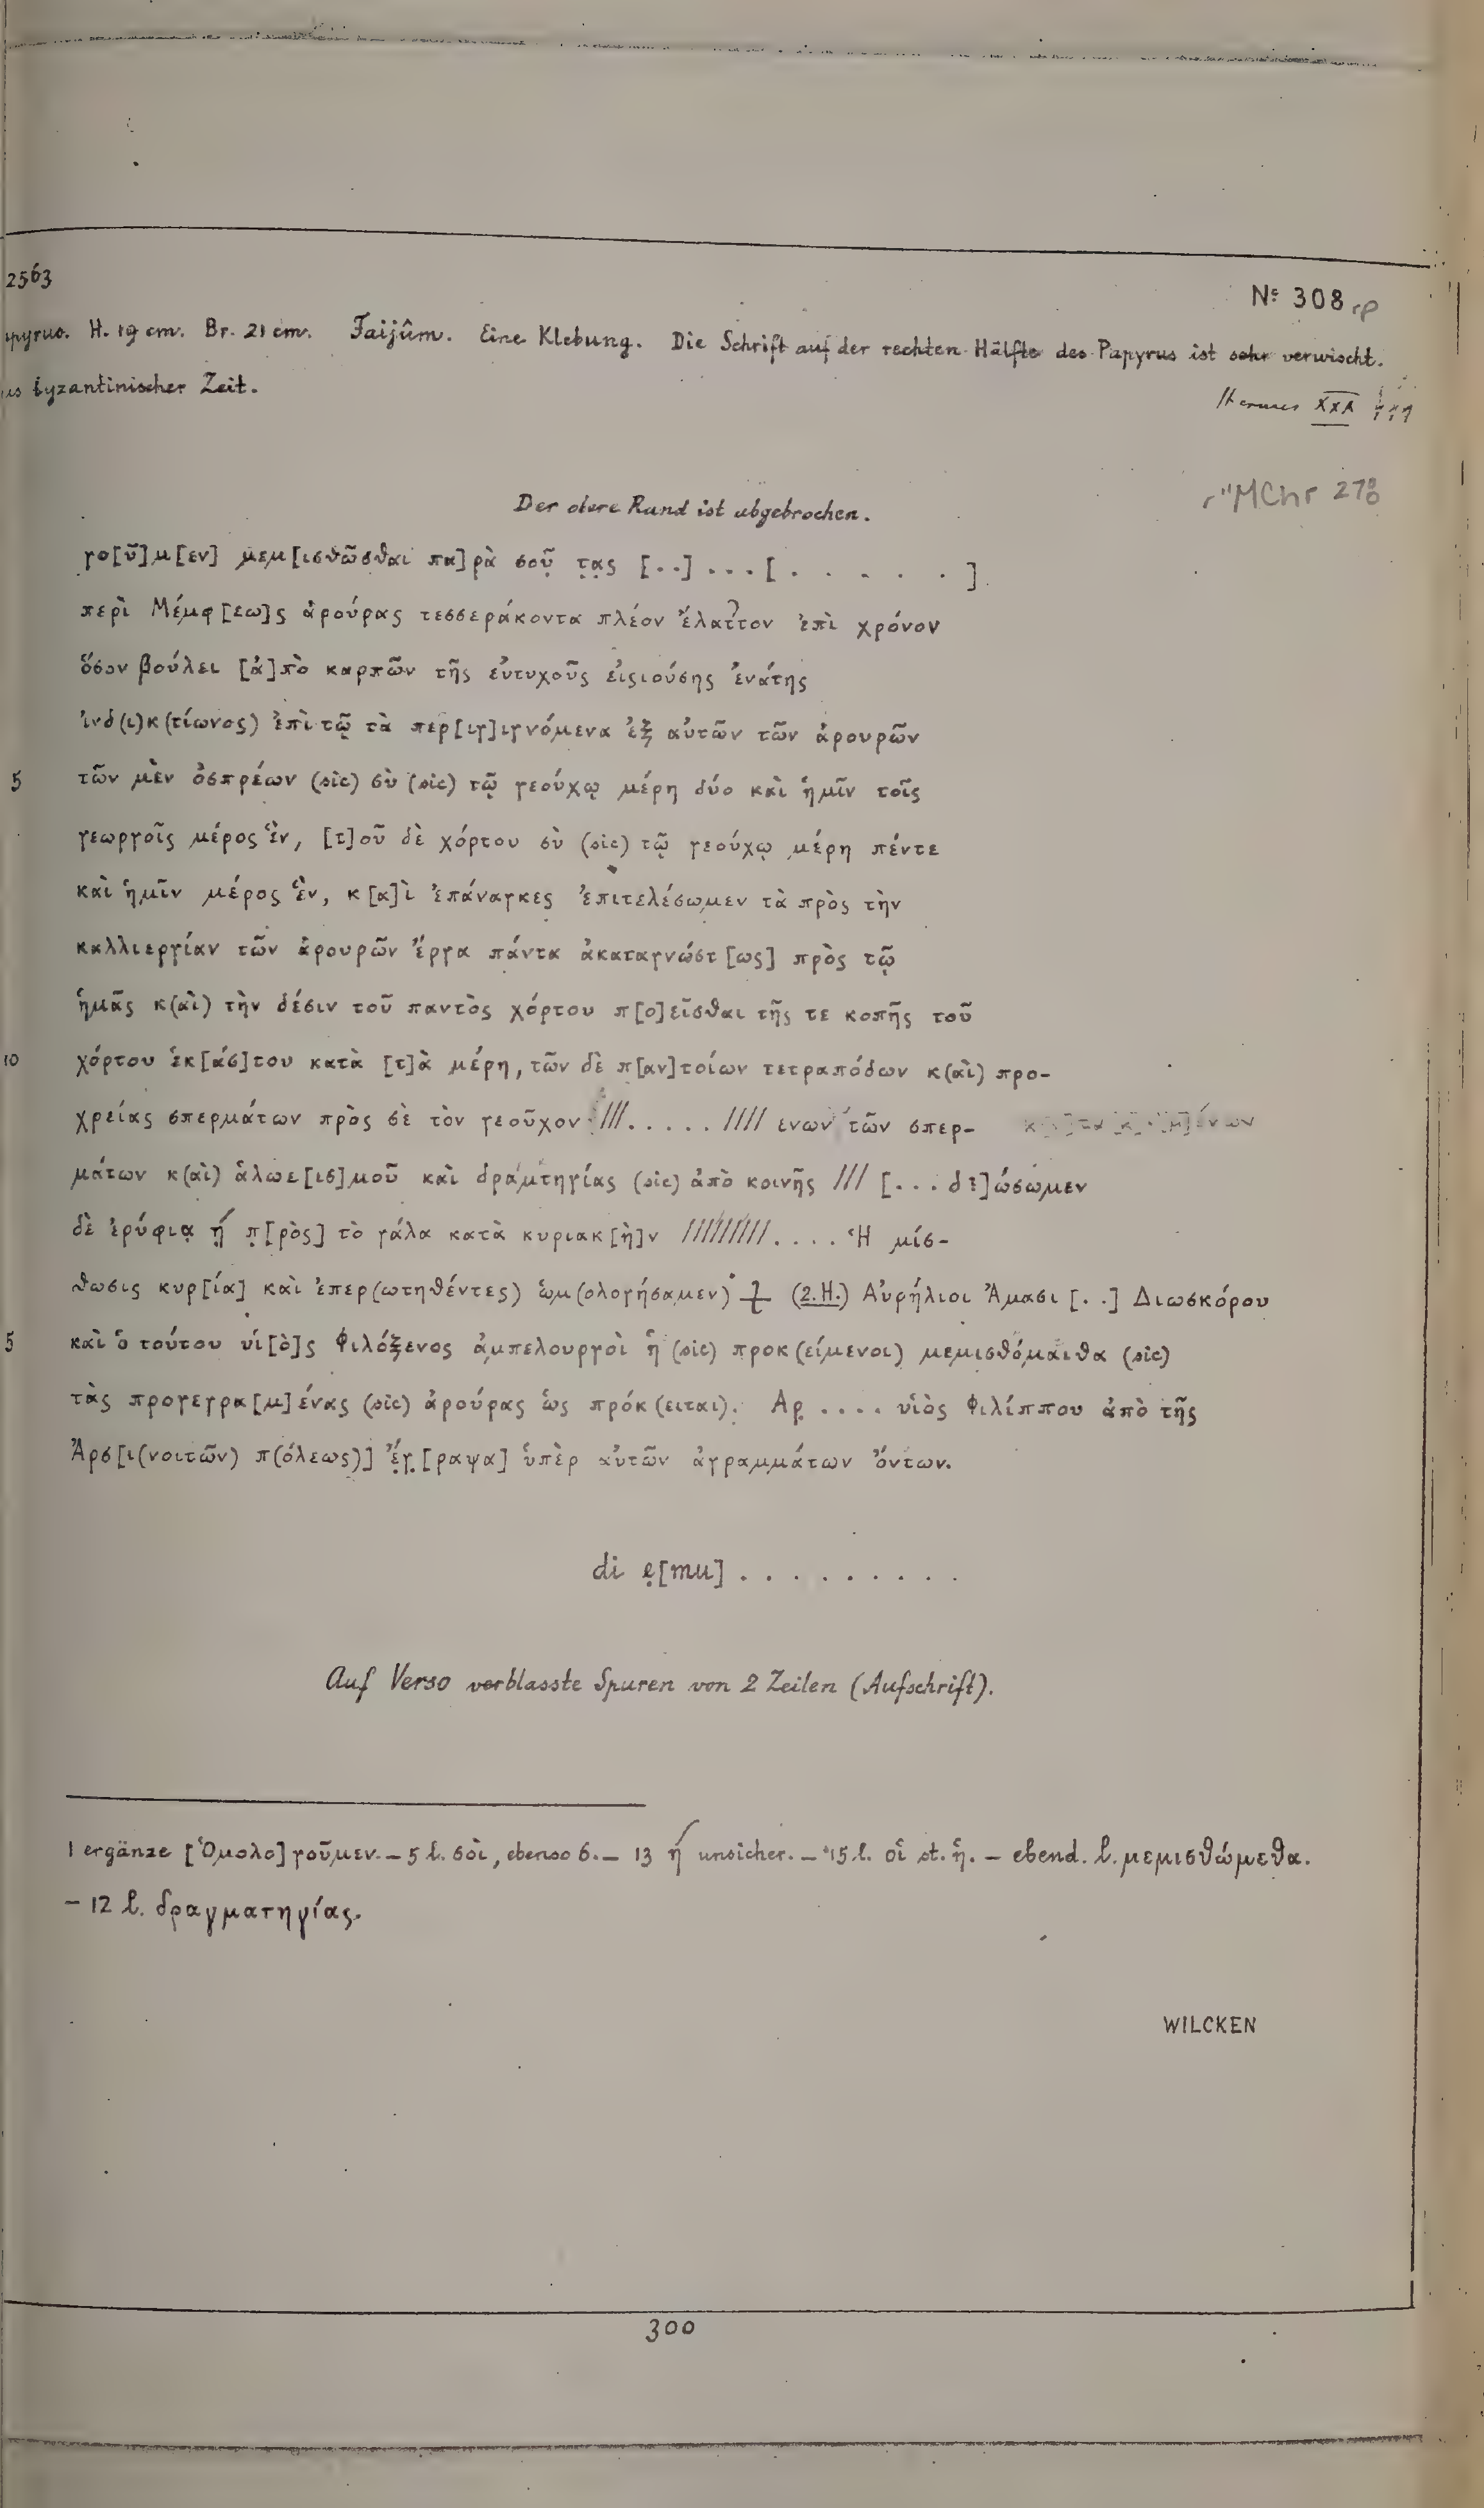 2563
Nº 308 rp
apyrus. H. 19 cm. Br. 21 cm. Faijûm. Eine Klebung. Die Schrift auf der rechten Hälfte des Papyrus ist sehr verwischt.
us byzantinischer Zeit.
Hermes XXX
MChr 278
Der obere Rand ist abgebrochen.
γο[ῦ]μ[εν] μεμ[ισθῶσθαι πα]ρὰ σοῦ̣ τ̣α̣ς [..]...[......]
περὶ Μέμφ[εω]ς ἀρούρας τεσσεράκοντα πλέον ἔλαττον ἐπὶ χρόνον
ὅσον βούλει [ἀ]πὸ καρπῶν τῆς εὐτυχοῦς εἰςιούσης ἐνάτης
ἰνδ(ι)κ(τίωνος) ἐπὶ τῷ τὰ περ[ιγ]ιγνόμενα ἐξ αὐτῶν τῶν ἀρουρῶν
5 τῶν μὲν ὀσπρέων (sic) σὺ (sic) τῷ γεούχῳ μέρη δύο καὶ ἡμῖν τοῖς
γεωργοῖς μέρος ἓν, [τ]οῦ δὲ χόρτου σὺ (sic) τῷ γεούχῳ μέρη πέντε
καὶ ἡμῖν μέρος ἓν, κ[α]ὶ ἐπάναγκες ἐπιτελέσωμεν τὰ πρὸς τὴν
καλλιεργίαν τῶν ἀρουρῶν ἔργα πάντα ἀκαταγνώστ[ως] πρὸς τῷ
ἡμᾶς κ(αὶ) τὴν δέσιν τοῦ παντὸς χόρτου π[ο]εῖσθαι τῆς τε κοπῆς τοῦ
10 χόρτου ἑκ[άσ]του κατὰ [τ]ὰ μέρη, τῶν δὲ π[αν]τοίων τετραπόδων κ(αὶ) προ-
χρείας σπερμάτων πρὸς σὲ τὸν γεοῦχον ///..... //// ενων τῶν σπερ-
μάτων κ(αὶ) ἁλωε[ισ]μοῦ καὶ δραμτηγίας (sic) ἀπὸ κοινῆς /// [...δ?]ώσωμεν
δὲ ἐρύφια̣ ἤ̣ π̣[ρὸς] τὸ γάλα κατὰ κυριακ[ὴ]ν /////////.... Ἡ μίσ-
θωσις κυρ[ία] καὶ ἐπερ(ωτηθέντες) ὡμ(ολογήσαμεν) (2. H.) Αὐρήλιοι Ἀμασι[..] Διωσκόρου
5 καὶ ὁ τούτου υἱ[ὸ]ς Φιλόξενος ἀμπελουργοὶ ἡ (sic) προκ(είμενοι) μεμισθόμαιθα (sic)
τὰς προγεγρα[μ]ένας (sic) ἀρούρας ὡς πρόκ(ειται). Αρ̣ .... υἱὸς Φιλίππου ἀπὸ τῆς
Ἀρσ[ι(νοιτῶν) π(όλεως)] ἔ̣γ̣[ραψα] ὑπὲρ αὐτῶν ἀγραμμάτων ὄντων.
di ẹ[mu] .........
Auf Verso verblasste Spuren von 2 Zeilen (Aufschrift).
1 ergänze [Ὁμολο]γοῦμεν. — 5 l. σοὶ, ebenso 6. — 13 ἤ unsicher. — 15 l. οἱ st. ἡ. — ebend. l. μεμισθώμεθα.
— 12 l. δραγματηγίας.
WILCKEN
300